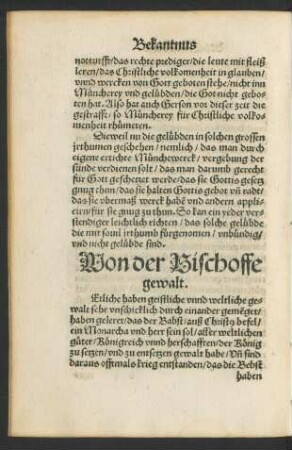 Bekantnus
notturfft/das rechte prediger/die leute mit fleiß
leren/das Christliche volkomenheit in glauben/
vnnd wercken von Gott geboten stehe/nicht inn
Müncherey vnd gelübden/die Got nicht gebo-
ten hat. Also hat auch Gerson vor dieser zeit die
gestrafft/so Müncherey für Christliche volko-
menheit rhümeten.
Dieweil nu die gelübden in solchen grossen
jrthumen geschehen/nemlich/das man durch
eigene ertichte Münchewerck/vergebung der
sünde verdienen solt/das man darumb gerecht
für Gott geschetzet werde/das sie Gottis gesetz
gnug thun/das sie halten Gottis gebot vñ radt/
das sie vbermaß werck habē vnd andern appli-
cirn für sie gnug zu thun. So kan ein yeder ver-
stendiger leichtlich richten/das solche gelübde
die mit souil irthumb fürgenomen/vnbündig/
vnd nicht gelübde sind.
Von der Bischoffe
gewalt.
Etliche haben geistliche vnnd weltliche ge-
walt sehr vnschicklich durch einander gemēget/
haben geleret/das der Babst/auß Christi befel/
ein Monarcha vnd herr sein sol/aller weltlichen
güter/Königreich vnnd herschafften/der König
zu setzen/vnd zu entsetzen gewalt habe/Vñ sind
daraus offtmals krieg entstanden/das die Bebst
haben